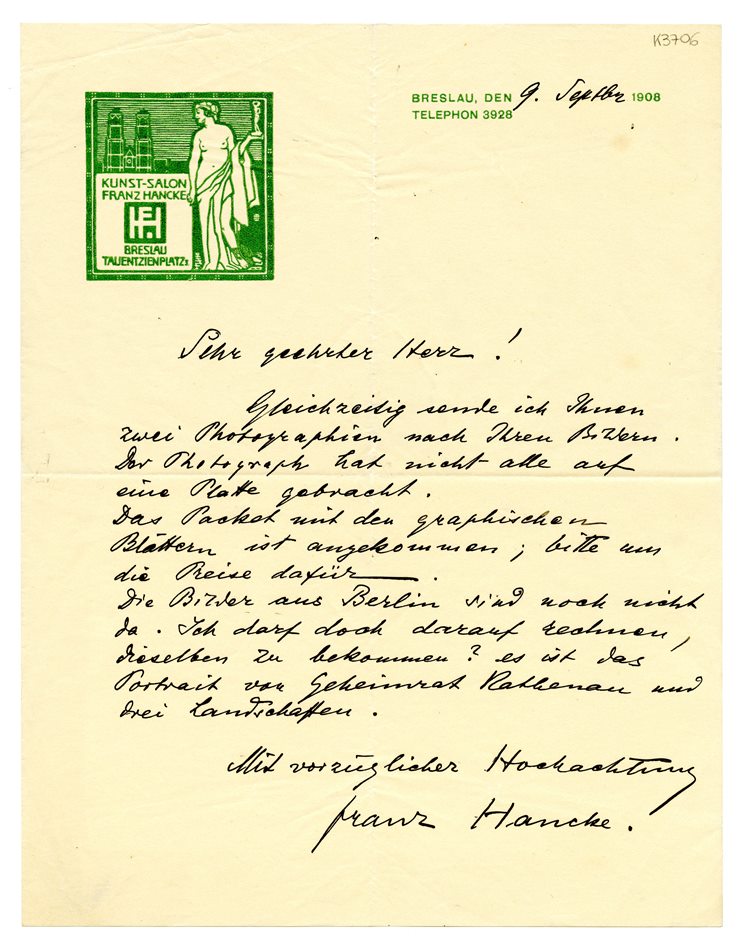 K3706
BRESLAU, DEN 9. Septbr 1908
TELEPHON 3928
KUNST-SALON
FRANZ HANCKE
FH
BRESLAU
TAUENTZIENPLATZ 1
Sehr geehrter Herr!
Gleichzeitig sende ich Ihnen
zwei Photographien nach Ihren Bildern.
Der Photograph hat nicht alle auf
eine Platte gebracht.
Das Packet mit den graphischen
Blättern ist angekommen; bitte um
die Preise dafür.
Die Bilder aus Berlin sind noch nicht
da. Ich darf doch darauf rechnen,
dieselben zu bekommen? es ist das
Portrait von Geheimrat Rathenau und
drei Landschaften.
Mit vorzüglicher Hochachtung
Franz Hancke.